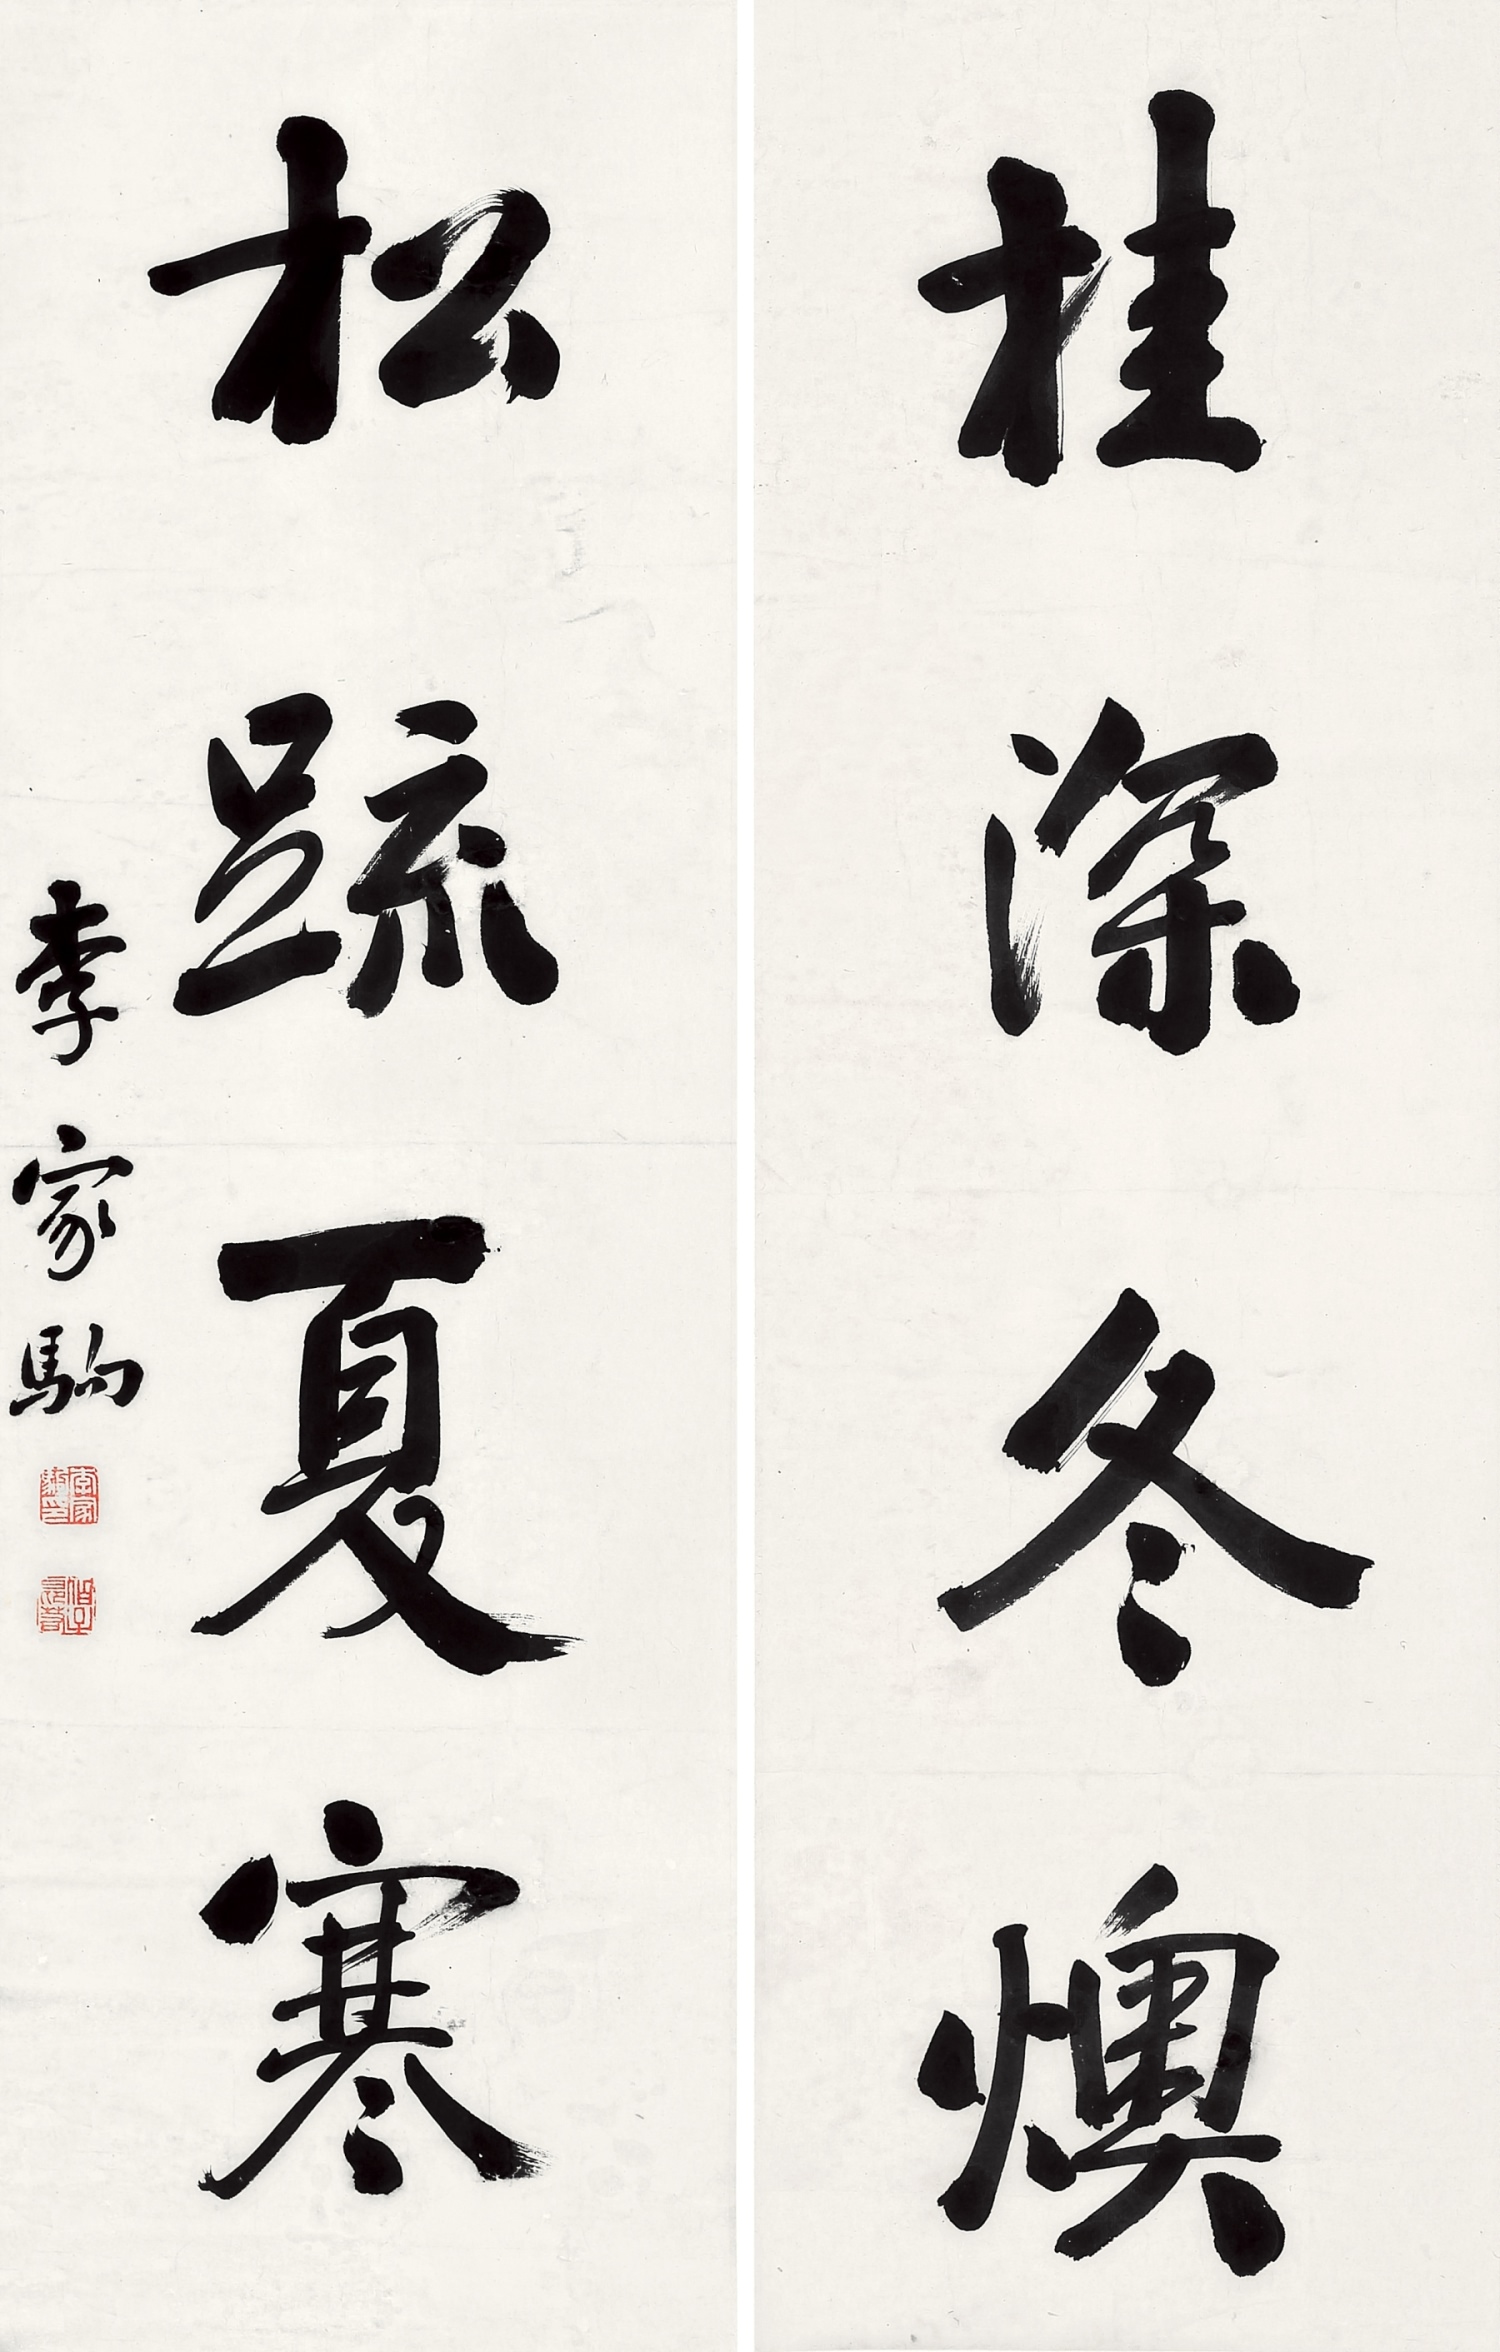 桂深冬燠
松疏夏寒
李家駒